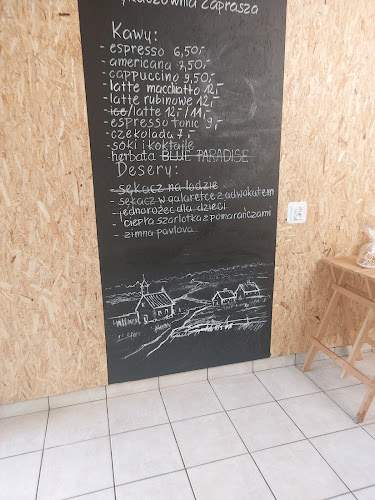 Sękaczownia zaprasza
Kawy:
- espresso 6,50,-
- americana 7,50,-
- cappuccino 9,50,-
- latte macchiatto 12,-
- latte rubinowe 12,-
- ice/latte 12,-/11,-
- espresso tonic 9,-
- czekolada 7,-
- soki i koktajle
- herbata BLUE PARADISE
Desery:
- sękacz na lodzie
- sękacz w galaretce z adwokatem
- jednorożec dla dzieci
- ciepła szarlotka z pomarańczami
- zimna pavlova